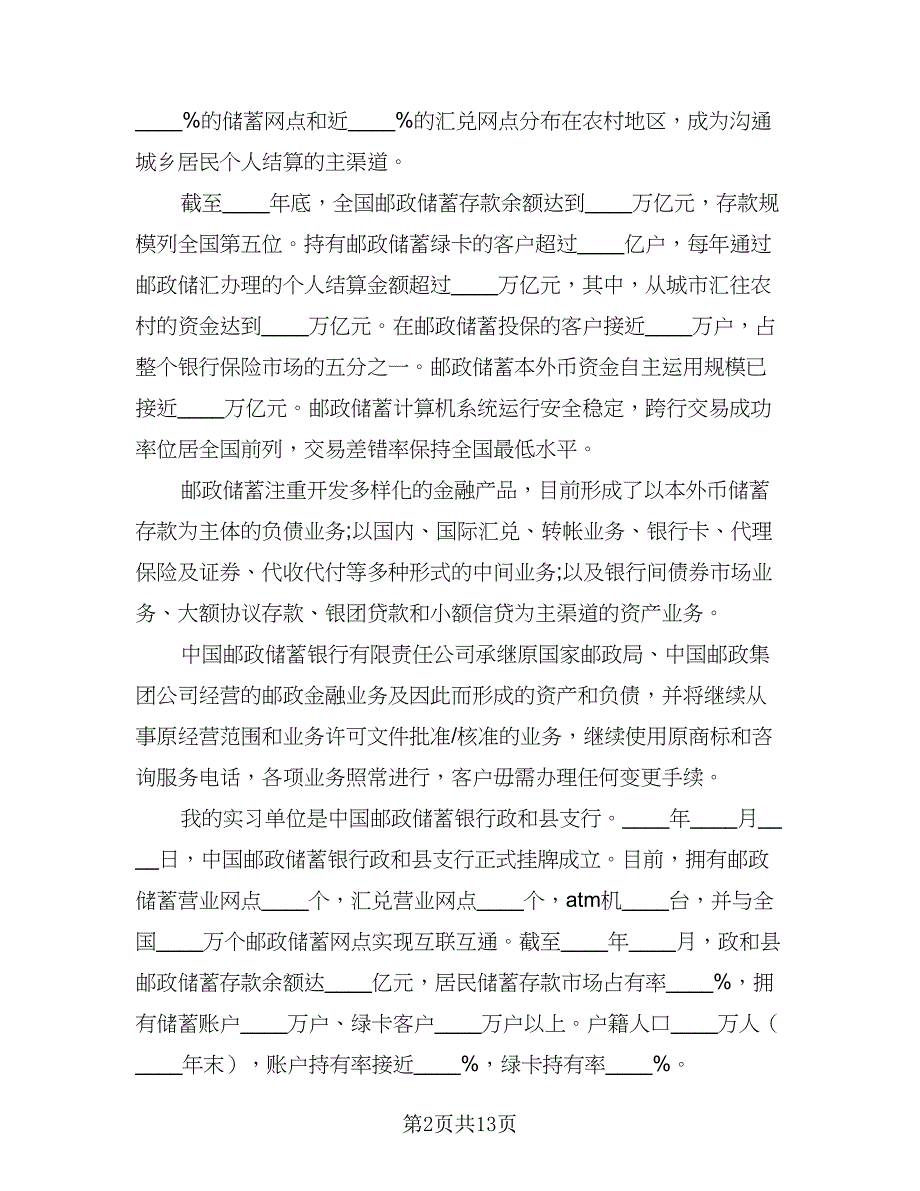 ____%的储蓄网点和近____%的汇兑网点分布在农村地区，成为沟通
城乡居民个人结算的主渠道。
截至____年底，全国邮政储蓄存款余额达到____万亿元，存款规
模列全国第五位。持有邮政储蓄绿卡的客户超过____亿户，每年通过
邮政储汇办理的个人结算金额超过____万亿元，其中，从城市汇往农
村的资金达到____万亿元。在邮政储蓄投保的客户接近____万户，占
整个银行保险市场的五分之一。邮政储蓄本外币资金自主运用规模已
接近____万亿元。邮政储蓄计算机系统运行安全稳定，跨行交易成功
率位居全国前列，交易差错率保持全国最低水平。
邮政储蓄注重开发多样化的金融产品，目前形成了以本外币储蓄
存款为主体的负债业务;以国内、国际汇兑、转帐业务、银行卡、代理
保险及证券、代收代付等多种形式的中间业务;以及银行间债券市场业
务、大额协议存款、银团贷款和小额信贷为主渠道的资产业务。
中国邮政储蓄银行有限责任公司承继原国家邮政局、中国邮政集
团公司经营的邮政金融业务及因此而形成的资产和负债，并将继续从
事原经营范围和业务许可文件批准/核准的业务，继续使用原商标和咨
询服务电话，各项业务照常进行，客户毋需办理任何变更手续。
我的实习单位是中国邮政储蓄银行政和县支行。____年____月__
__日，中国邮政储蓄银行政和县支行正式挂牌成立。目前，拥有邮政
储蓄营业网点____个，汇兑营业网点____个，atm机____台，并与全
国____万个邮政储蓄网点实现互联互通。截至____年____月，政和县
邮政储蓄存款余额达____亿元，居民储蓄存款市场占有率____%，拥
有储蓄账户____万户、绿卡客户____万户以上。户籍人口____万人（
____年末），账户持有率接近____%，绿卡持有率____%。
第2页共13页